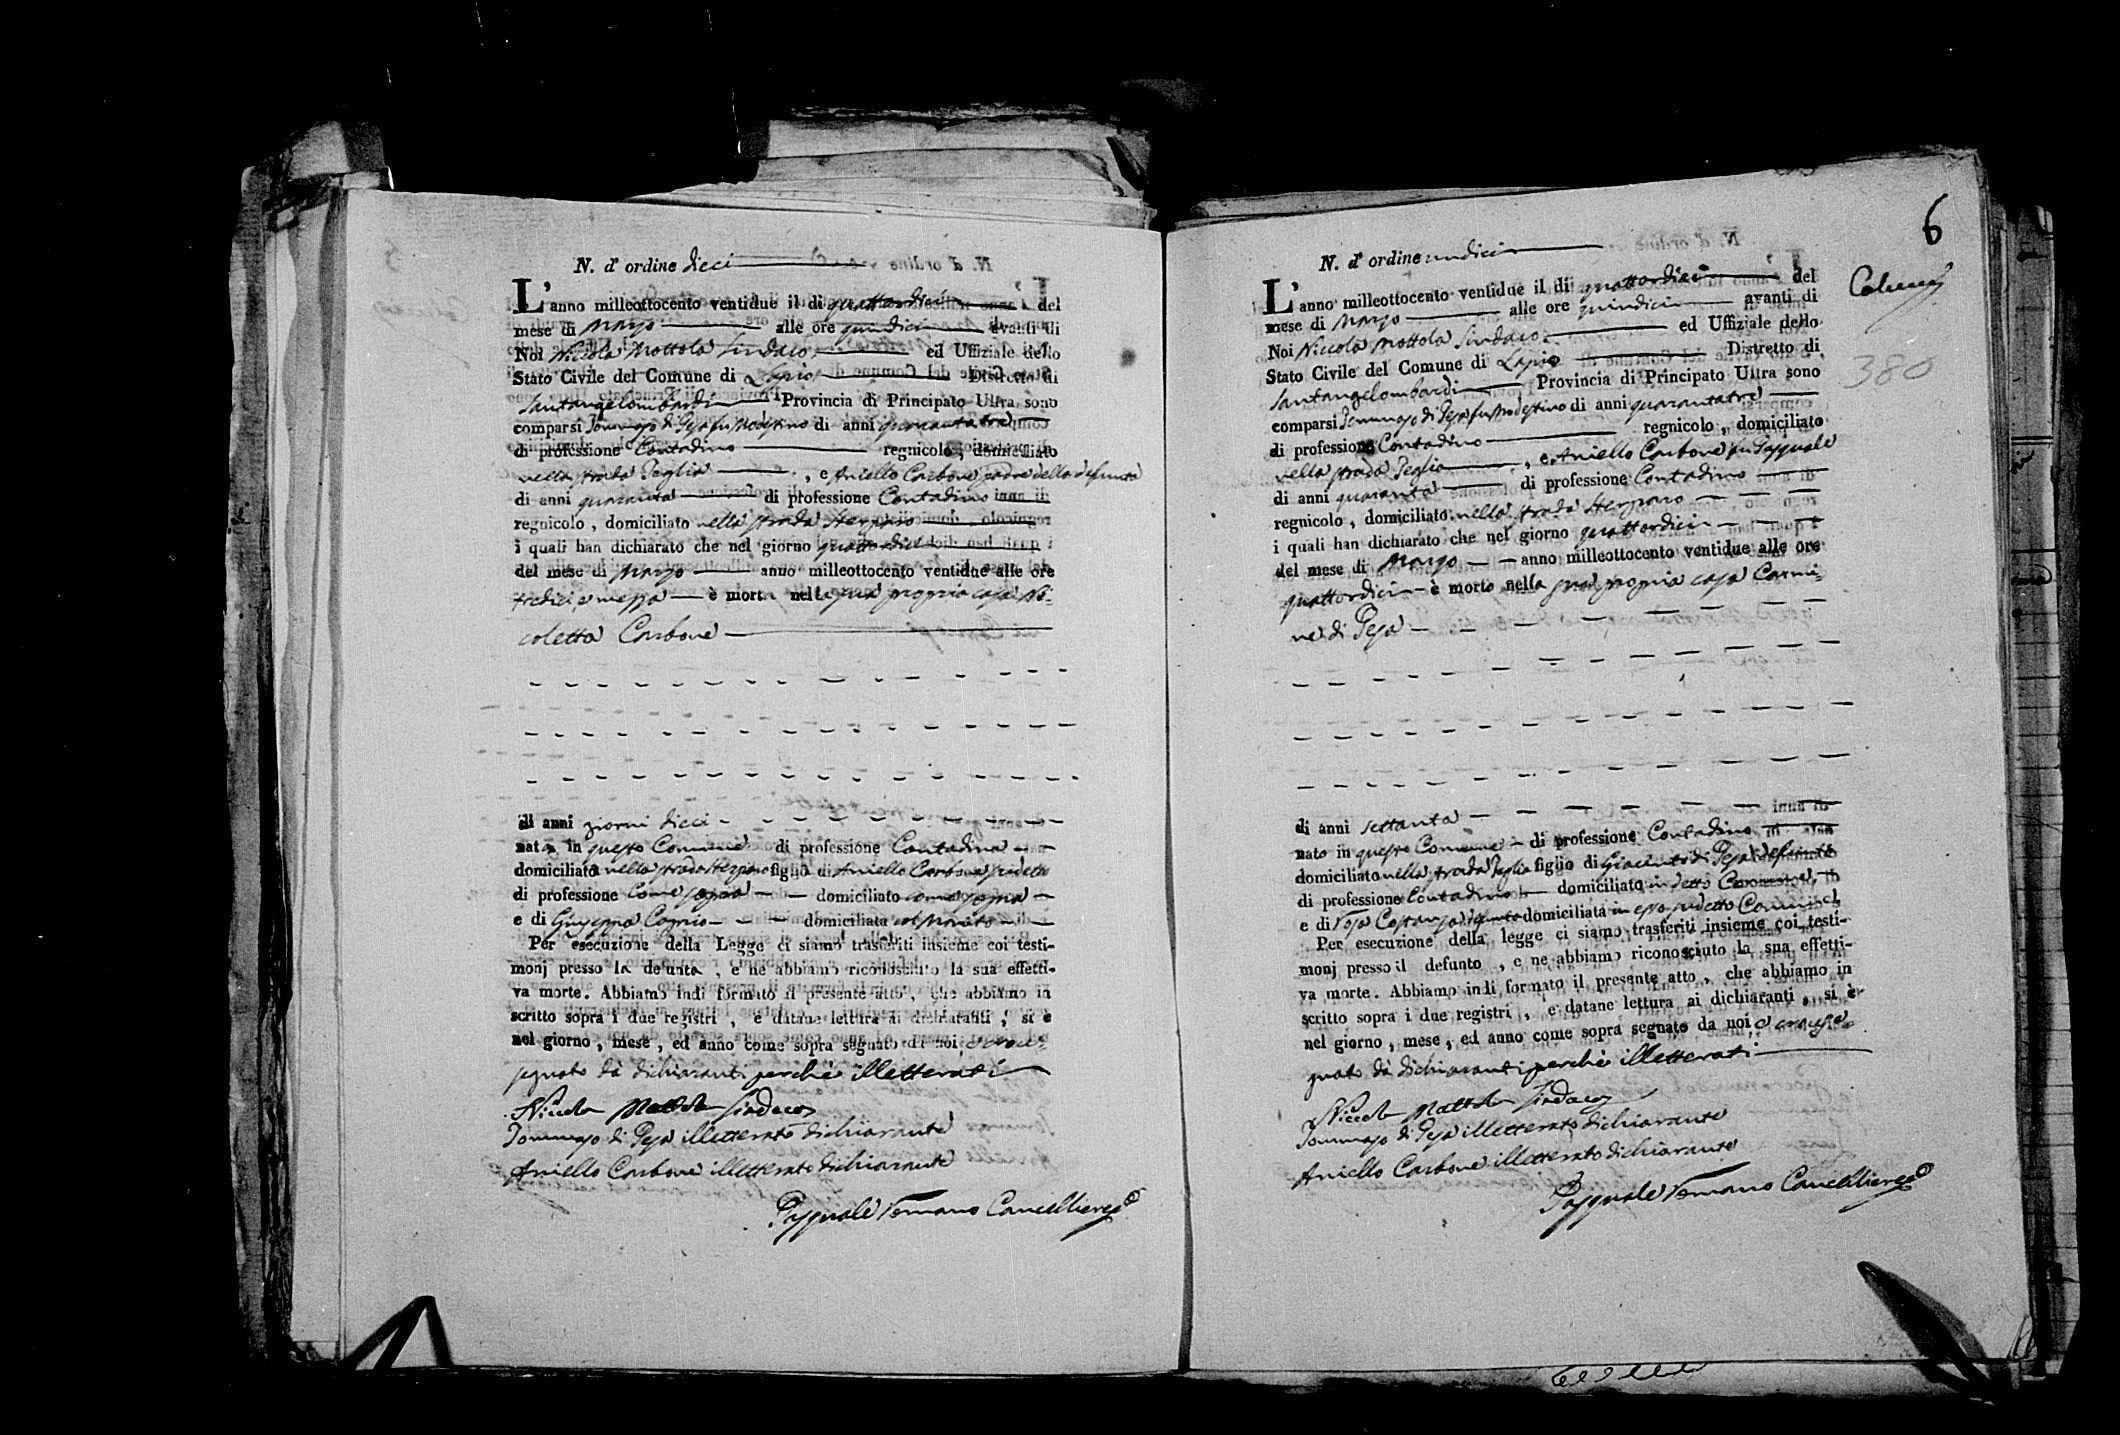 N. d' ordine dieci
L' anno milleottocento ventidue il di quattordici del
mese di Marzo alle ore quindici avanti di
Noi Niccola Mottola Sindaco ed Uffiziale dello
Stato Civile del Comune di Lapio Distretto di
Santangelombardi Provincia di Principato Ultra sono
comparsi Tommaso di Pesa fu Modestino di anni quarantatre
di professione Contadino regnicolo, domiciliato
nella strada Teglia, e Aniello Carbone padre della defunta
di anni quaranta di professione Contadino
regnicolo, domiciliato nella strada
i quali han dichiarato che nel giorno quattordici
del mese di Marzo anno milleottocento ventidue alle ore
tredici e mezza è morta nella sua propria casa Ni-
coletta Carbone
di anni giorni dieci
nata in questo Comune di professione Contadina
domiciliata nella strada figlia di Aniello Carbone sudetto
di professione come sopra domiciliato come sopra
e di Giuseppa domiciliata col Marito
Per esecuzione della Legge ci siamo trasferiti insieme coi testi-
monj presso la defunta, e ne abbiamo riconosciuto la sua effetti-
va morte. Abbiamo indi formato il presente atto, che abbiamo in
scritto sopra i due registri, e datane lettura ai dichiaranti, si è
nel giorno, mese, ed anno come sopra segnato da noi, e non
segnato da dichiaranti perchè illetterati
Niccola Mottola Sindaco
Tommaso di Pesa illetterato dichiarante
Aniello Carbone illetterato dichiarante
Pasquale Romano Cancelliere
6
N. d' ordine undici
L' anno milleottocento ventidue il di quattordici del
mese di Marzo alle ore quindici avanti di
Noi Niccola Mottola Sindaco ed Uffiziale dello
Stato Civile del Comune di Lapio Distretto di
Santangelombardi Provincia di Principato Ultra sono
comparsi Tommaso di Pesa fu Modestino di anni quarantatre
di professione Contadino regnicolo, domiciliato
nella strada Teglia, e Aniello Carbone fu Pasquale
di anni quaranta di professione Contadino
regnicolo, domiciliato nella strada
i quali han dichiarato che nel giorno quattordici
del mese di Marzo anno milleottocento ventidue alle ore
quattordici è morto nella sua propria casa Carmi-
ne di Pesa
380
di anni settanta
nato in questo Comune di professione Contadino
domiciliato nella strada Teglia figlio di Giacinto di Pesa defunto
di professione Contadino domiciliato in detto Comune
e di Rosa Costanza defunta domiciliata in esso sudetto Comune
Per esecuzione della legge ci siamo trasferiti insieme coi testi-
monj presso il defunto, e ne abbiamo riconosciuto la sua effetti-
va morte. Abbiamo indi formato il presente atto, che abbiamo in
scritto sopra i due registri, e datane lettura ai dichiaranti, si è
nel giorno, mese, ed anno come sopra segnato da noi, e non se-
gnato da dichiaranti perchè illetterati
Niccola Mottola Sindaco
Tommaso di Pesa illetterato dichiarante
Aniello Carbone illetterato dichiarante
Pasquale Romano Cancelliere